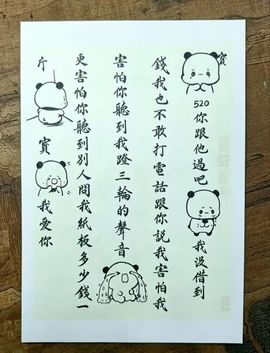 寶520你跟他過吧我沒借到
錢我也不敢打電話跟你說我害怕我
害怕你聽到我蹬三輪的聲音
更害怕你聽到別人問我紙板多少錢一
斤寶我愛你